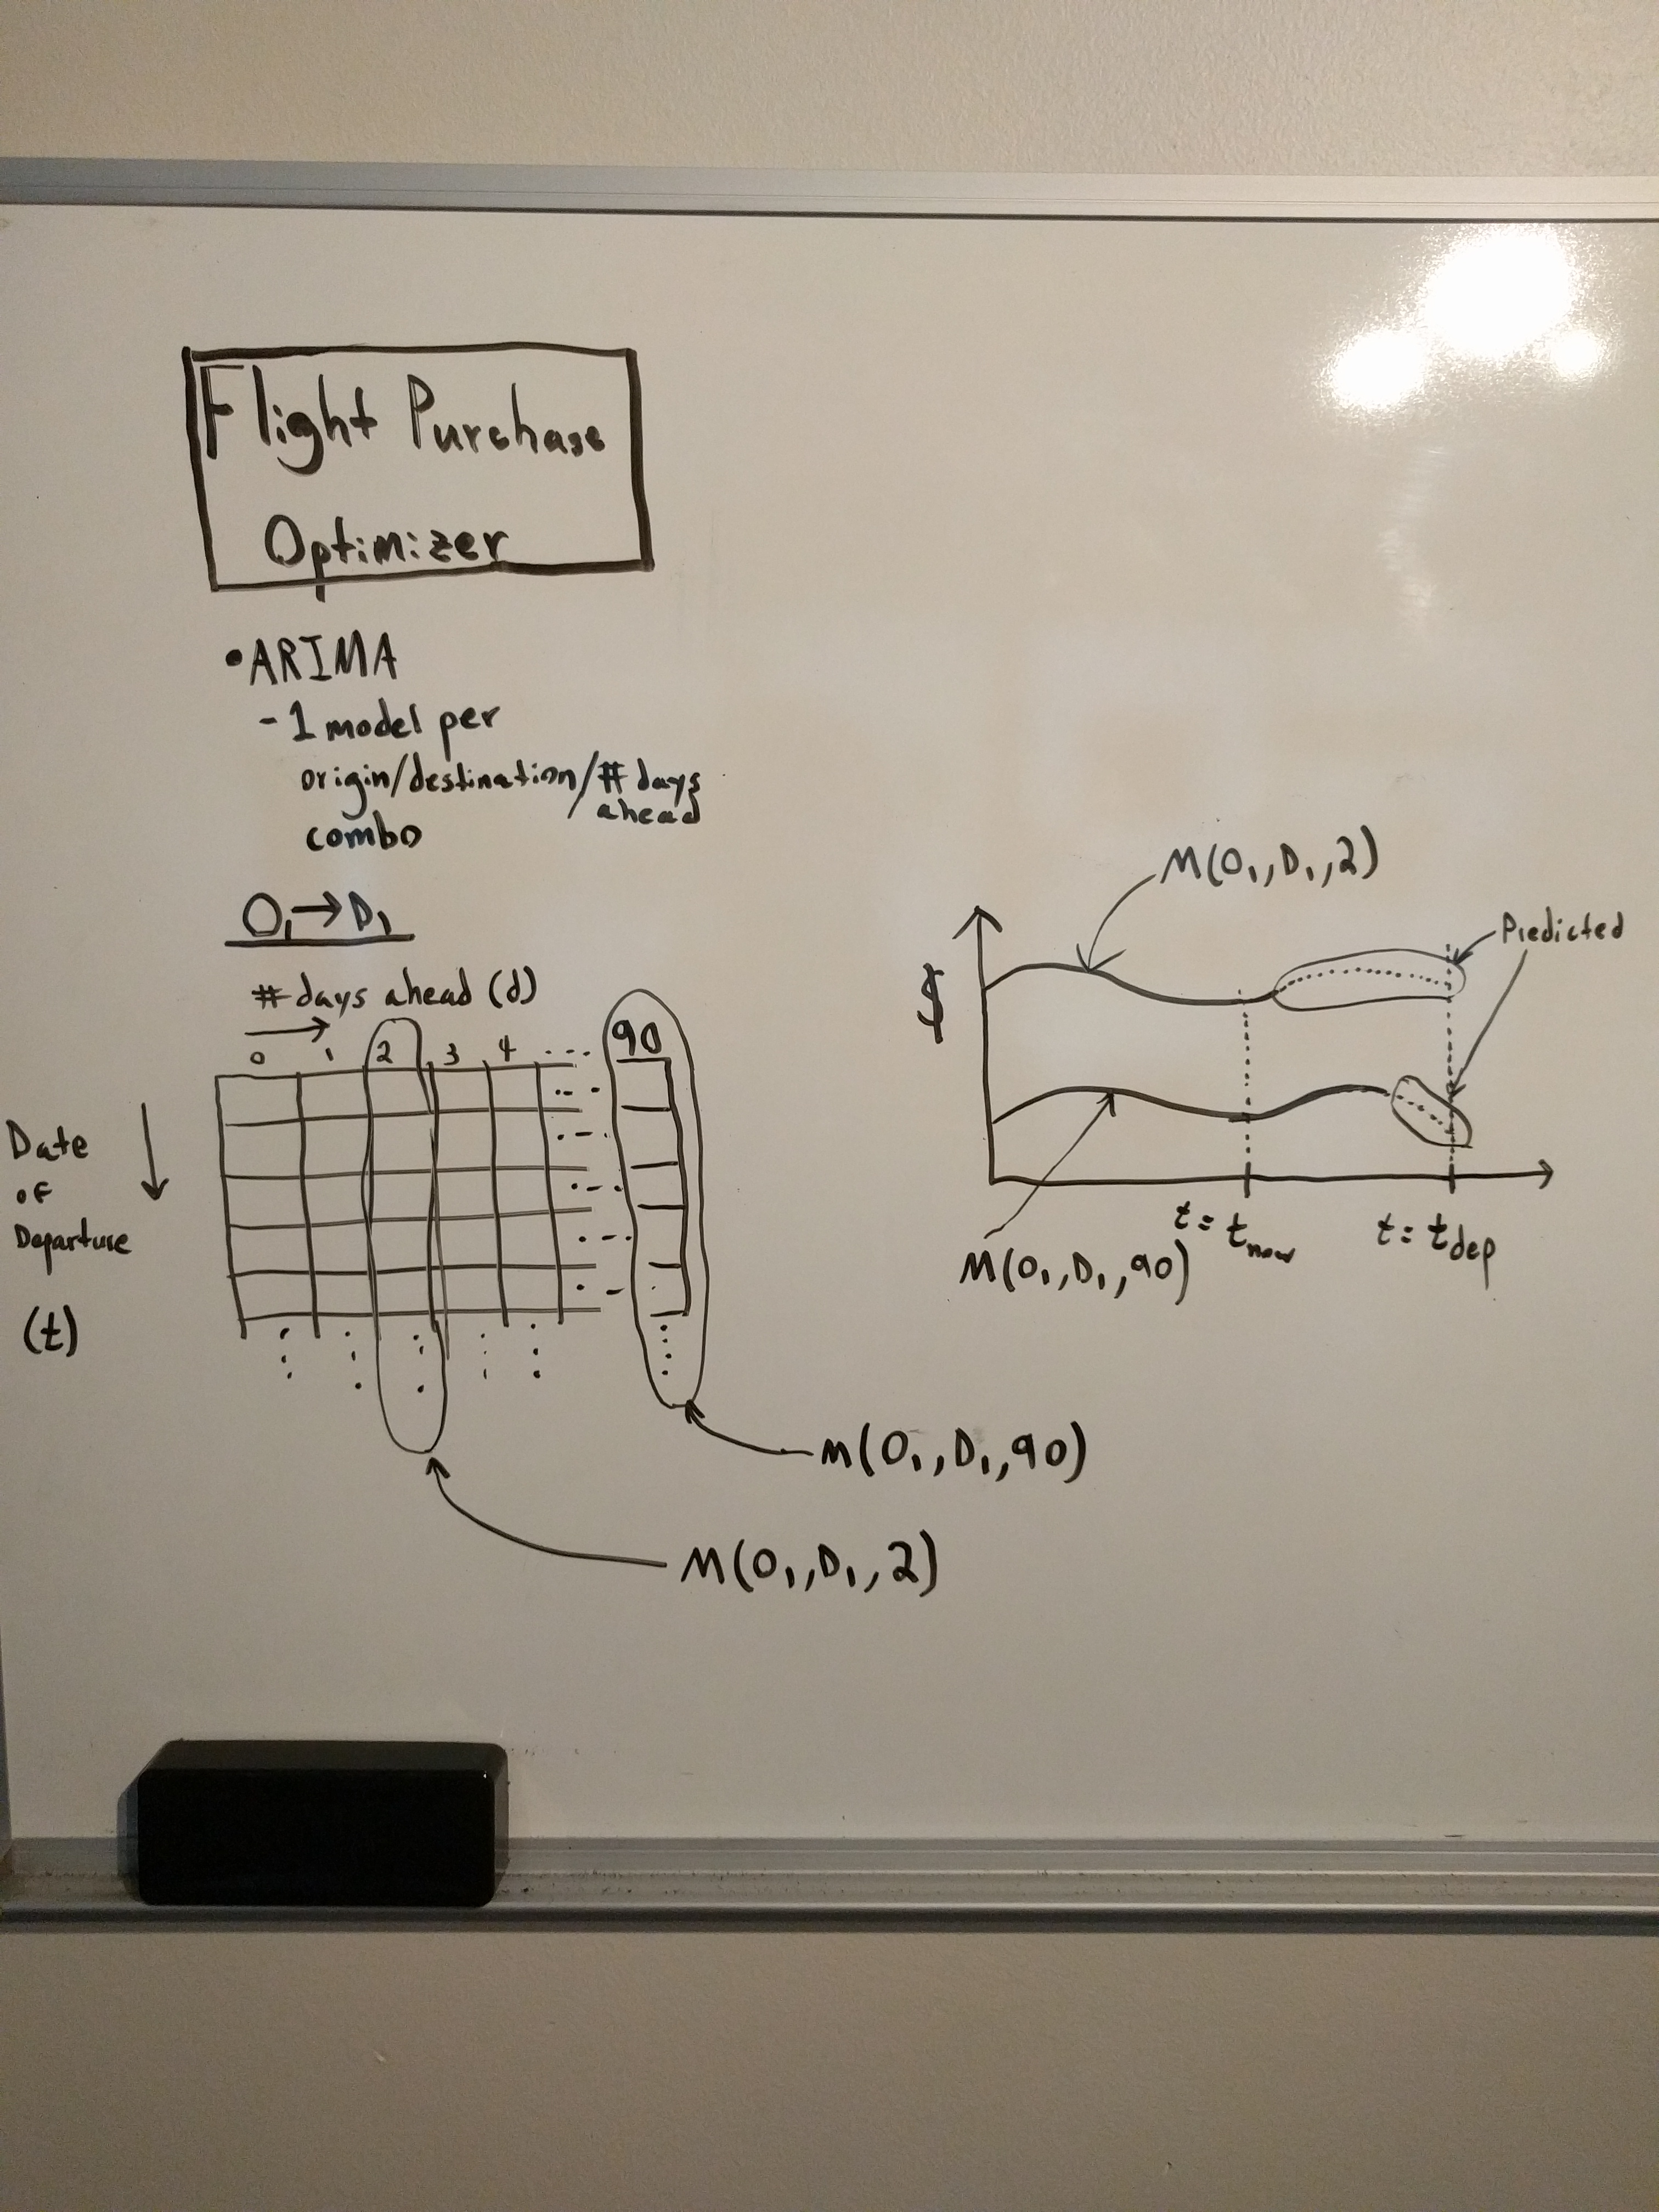 Flight Purchase
Optimizer
•ARIMA
- 1 model per
origin/destination/# days
ahead
combo
O₁→D₁
# days ahead (d)
0 1 2 3 4 --- 90
Date
of
Departure
(t)
M(O₁,D₁,90)
M(O₁,D₁,2)
M(O₁,D₁,2)
Predicted
$
t=t now
t=t dep
M(O₁,D₁,90)